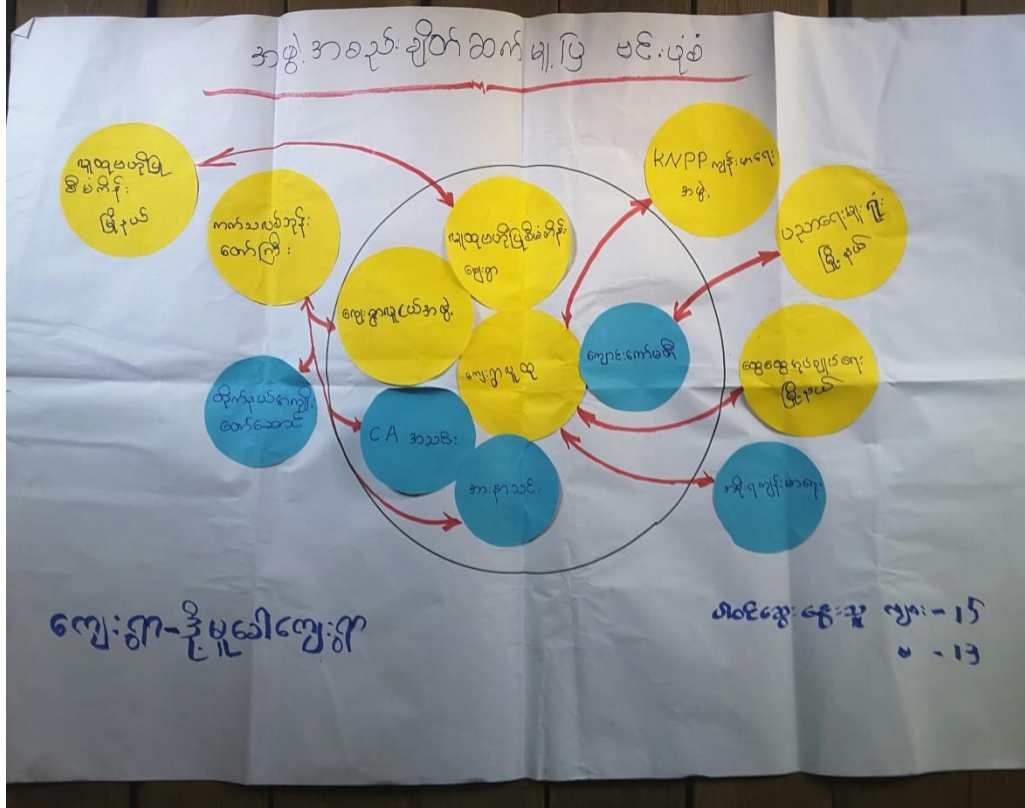 အဖွဲ့အစည်းချိတ်ဆက်မှုပြ ဗင်းပုံစံ
လူထုဗဟိုပြု
စီမံကိန်း
မြို့နယ်
ကက်သလစ်ဘုန်း
တော်ကြီး
လူထုဗဟိုပြုစီမံကိန်း
ကျေးရွာ
KNPP ကျန်းမာရေး
အဖွဲ့
ပညာရေးမှူးရုံး
မြို့နယ်
ကျေးရွာလူငယ်အဖွဲ့
ကျေးရွာလူထု
ကျောင်းကော်မတီ
ထွေထွေအုပ်ချုပ်ရေး
မြို့နယ်
တိုက်နယ်အကျိုး
တော်ဆောင်
CA အသင်း
အားနာသင်း
အစိုးရကျန်းမာရေး
ကျေးရွာ-ဒို့မူခေါ်ကျေးရွာ
ပါဝင်ဆွေးနွေးသူ ကျား - 15
မ - 13